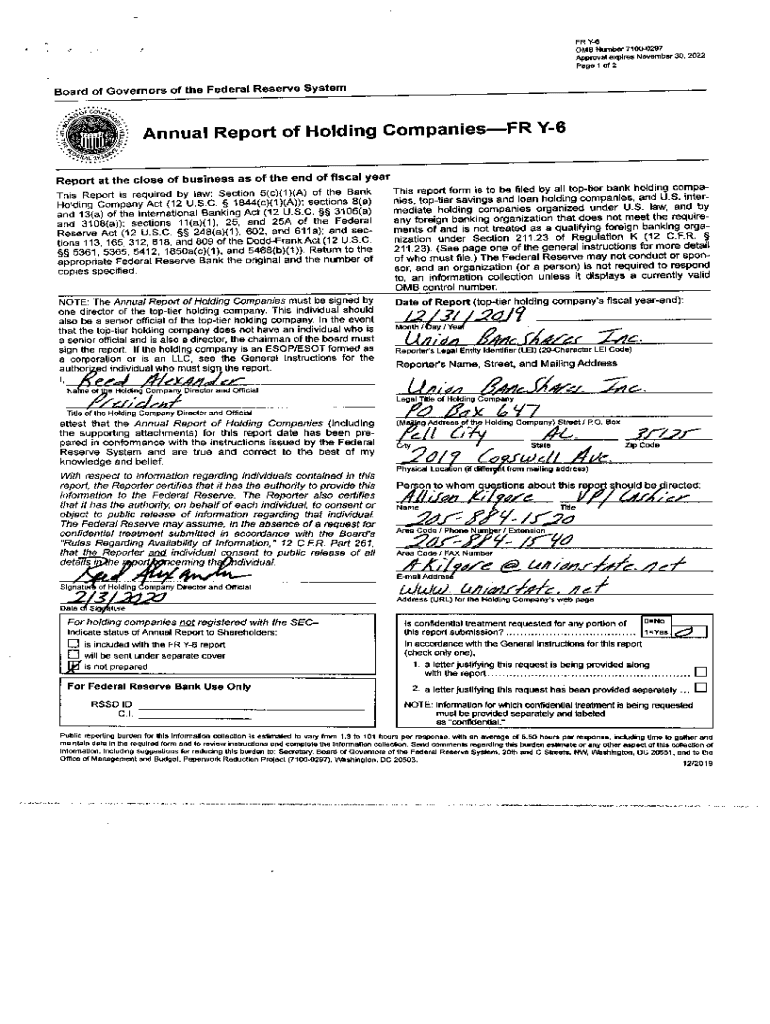 FR Y-6
OMB Number 7100-0297
Approval expires November 30, 2022
Page 1 of 2
Board of Governors of the Federal Reserve System
Annual Report of Holding Companies—FR Y-6
Report at the close of business as of the end of fiscal year
This Report is required by law: Section 5(c)(1)(A) of the Bank
Holding Company Act (12 U.S.C. § 1844(c)(1)(A)); sections 8(a)
and 13(a) of the International Banking Act (12 U.S.C. §§ 3106(a)
and 3108(a)); sections 11(a)(1), 25, and 25A of the Federal
Reserve Act (12 U.S.C. §§ 248(a)(1), 602, and 611a); and sec-
tions 113, 165, 312, 618, and 809 of the Dodd-Frank Act (12 U.S.C.
§§ 5361, 5365, 5412, 1850a(c)(1), and 5468(b)(1)). Return to the
appropriate Federal Reserve Bank the original and the number of
copies specified.
This report form is to be filed by all top-tier bank holding compa-
nies, top-tier savings and loan holding companies, and U.S. inter-
mediate holding companies organized under U.S. law, and by
any foreign banking organization that does not meet the require-
ments of and is not treated as a qualifying foreign banking orga-
nization under Section 211.23 of Regulation K (12 C.F.R. §
211.23). (See page one of the general instructions for more detail
of who must file.) The Federal Reserve may not conduct or spon-
sor, and an organization (or a person) is not required to respond
to, an information collection unless it displays a currently valid
OMB control number.
NOTE: The Annual Report of Holding Companies must be signed by
one director of the top-tier holding company. This individual should
also be a senior official of the top-tier holding company. In the event
that the top-tier holding company does not have an individual who is
a senior official and is also a director, the chairman of the board must
sign the report. If the holding company is an ESOP/ESOT formed as
a corporation or is an LLC, see the General Instructions for the
authorized individual who must sign the report.
I, Reed Alexander
Name of the Holding Company Director and Official
President
Title of the Holding Company Director and Official
attest that the Annual Report of Holding Companies (including
the supporting attachments) for this report date has been pre-
pared in conformance with the instructions issued by the Federal
Reserve System and are true and correct to the best of my
knowledge and belief.
With respect to information regarding individuals contained in this
report, the Reporter certifies that it has the authority to provide this
information to the Federal Reserve. The Reporter also certifies
that it has the authority, on behalf of each individual, to consent or
object to public release of information regarding that individual.
The Federal Reserve may assume, in the absence of a request for
confidential treatment submitted in accordance with the Board's
"Rules Regarding Availability of Information," 12 C.F.R. Part 261,
that the Reporter and individual consent to public release of all
details in the report concerning that individual.
Reed Alexander
Signature of Holding Company Director and Official
2/3/2020
Date of Signature
For holding companies not registered with the SEC–
Indicate status of Annual Report to Shareholders:
is included with the FR Y-6 report
will be sent under separate cover
is not prepared
For Federal Reserve Bank Use Only
RSSD ID
C.I.
Date of Report (top-tier holding company's fiscal year-end):
12/31/2019
Month / Day / Year
Union BancShares Inc.
Reporter's Legal Entity Identifier (LEI) (20-Character LEI Code)
Reporter's Name, Street, and Mailing Address
Union BancShares Inc.
Legal Title of Holding Company
PO Box 647
(Mailing Address of the Holding Company) Street / P.O. Box
Pell City AL. 35125
City State Zip Code
2019 Cogswell Ave.
Physical Location (if different from mailing address)
Person to whom questions about this report should be directed:
Allison Kilgore VP/Cashier
Name Title
205-884-1520
Area Code / Phone Number / Extension
205-884-1540
Area Code / FAX Number
AKilgore@unionstate.net
E-mail Address
www.unionstate.net
Address (URL) for the Holding Company's web page
Is confidential treatment requested for any portion of
this report submission?
0=No
1=Yes 0
In accordance with the General Instructions for this report
(check only one),
1. a letter justifying this request is being provided along
with the report
2. a letter justifying this request has been provided separately ...
NOTE: Information for which confidential treatment is being requested
must be provided separately and labeled
as "confidential."
Public reporting burden for this information collection is estimated to vary from 1.3 to 101 hours per response, with an average of 5.50 hours per response, including time to gather and
maintain data in the required form and to review instructions and complete the information collection. Send comments regarding this burden estimate or any other aspect of this collection of
information, including suggestions for reducing this burden to: Secretary, Board of Governors of the Federal Reserve System, 20th and C Streets, NW, Washington, DC 20551, and to the
Office of Management and Budget, Paperwork Reduction Project (7100-0297), Washington, DC 20503.
12/2019